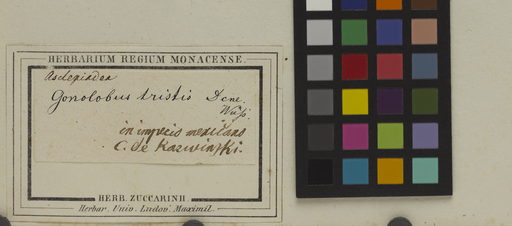 HERBARIUM REGIUM MONACENSE.
Asclepiadea
Gonolobus tristis Dcne.
in imperio mexicano
C. de Karwinski.
HERB. ZUCCARINII
Herbar. Univ. Ludov. Maximil.